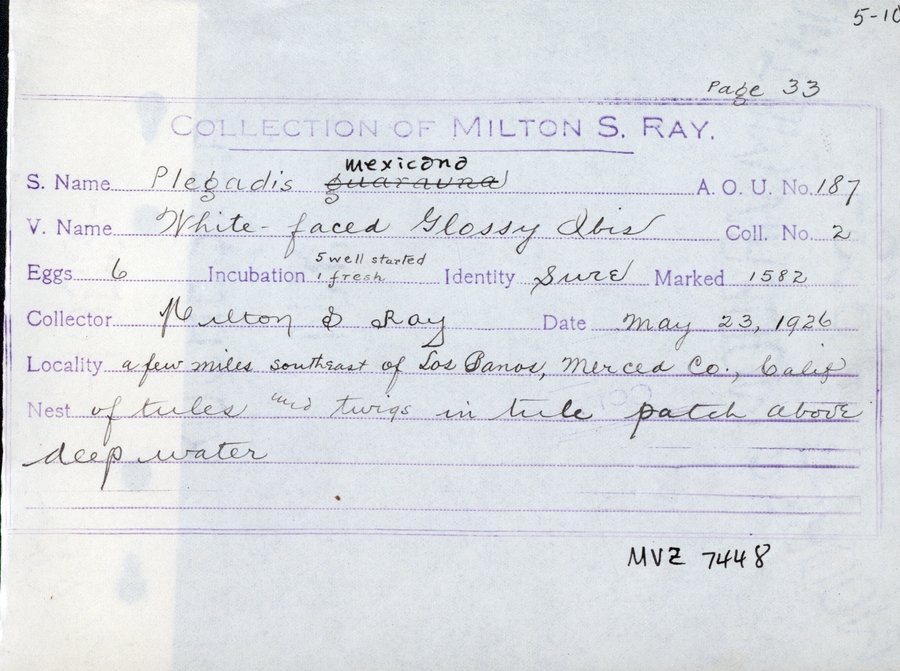 5-10
Page 33
COLLECTION OF MILTON S. RAY.
mexicana
S. Name Plegadis guarauna A. O. U. No. 187
V. Name White-faced Glossy Ibis Coll. No. 2
5 well started
Eggs 6 Incubation 1 fresh Identity Sure Marked 1582
Collector Milton S Ray Date May 23, 1926
Locality a few miles southeast of Los Banos, Merced Co., Calif
Nest of tules and twigs in tule patch above
deep water
MVZ 7448